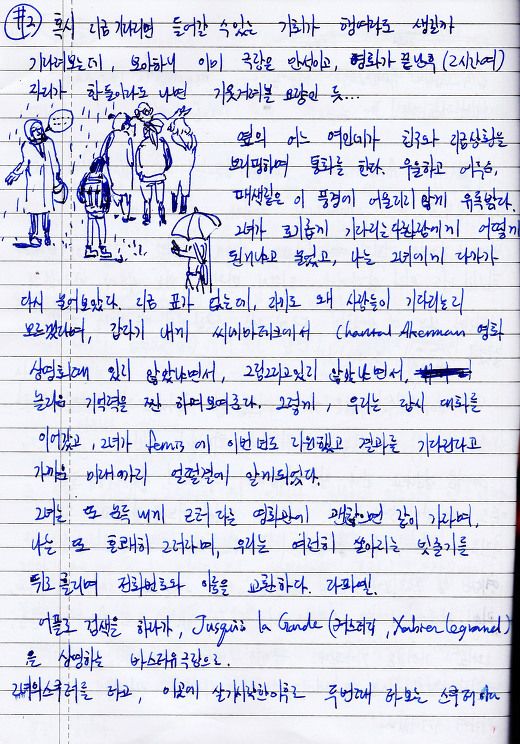 #2) 혹시 지금 기다리면 들어갈 수 있는 기회가 행여라도 생길까
기다려보는데, 보아하니 이미 극장은 만석이고, 영화가 끝난 후 (2시간여)
자리가 한둘이라도 나면 기웃거려볼 요량인 듯...
옆의 어느 여인네가 친구와 지금상황을
브리핑하며 통화를 한다. 우울하고 어두운,
이 풍경에 어울리지 않게 유쾌하다.
그녀가 초기롭게 기다리는 사람에게 어떻게
된거냐고 물었고, 나는 그녀에게 다가가
다시 물어보았다. 지금 표가 없는데, 자기도 왜 사람들이 기다리는지
모르겠다며, 갑자기 내게 씨네마떼크에서 Chantal Akerman 영화
상영회때 있지 않았냐면서, 그림그리고 있지 않았냐면서,
놀라운 기억력을 짠 하며 보여준다. 그렇게, 우리는 잠시 대화를
이어갔고, 그녀가 femis에 이번년도 지원했고 결과를 기다린다고
가까운 미래까지 얼떨결에 알게되었다.
그녀는 또 불쑥 내게 근처 다른 영화관에 괜찮으면 같이 가자며,
나는 또 흔쾌히 그러자며, 우리는 여전히 쏟아지는 빗줄기를
뒤로 흘리며 전화번호와 이름을 교환하다. 라파엘.
어플로 검색을 하다가, Jusqu'à la Garde (커스터디, Xabier Legrand)
을 상영하는 바스티유 극장으로.
그녀의 스쿠터를 타고, 이곳에 살기시작한 이후로 두번째 타보는 스쿠터